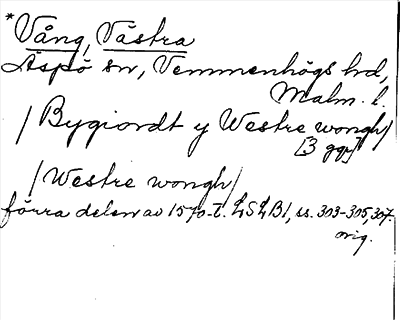 *Vång, Västra
Äspö sn, Vemmenhögs hd,
Malm. l.
/Bygiordt y Westre wongh/
[3 ggr]
/Westre wongh/
förra delen av 1570-t. LSLB1, ss. 303-305, 307.
orig.